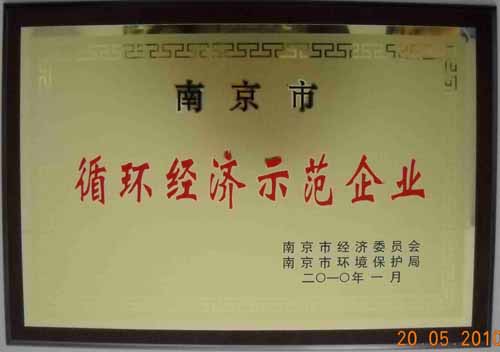 南京市
循环经济示范企业
南京市经济委员会
南京市环境保护局
二〇一〇年一月
20 05 2010